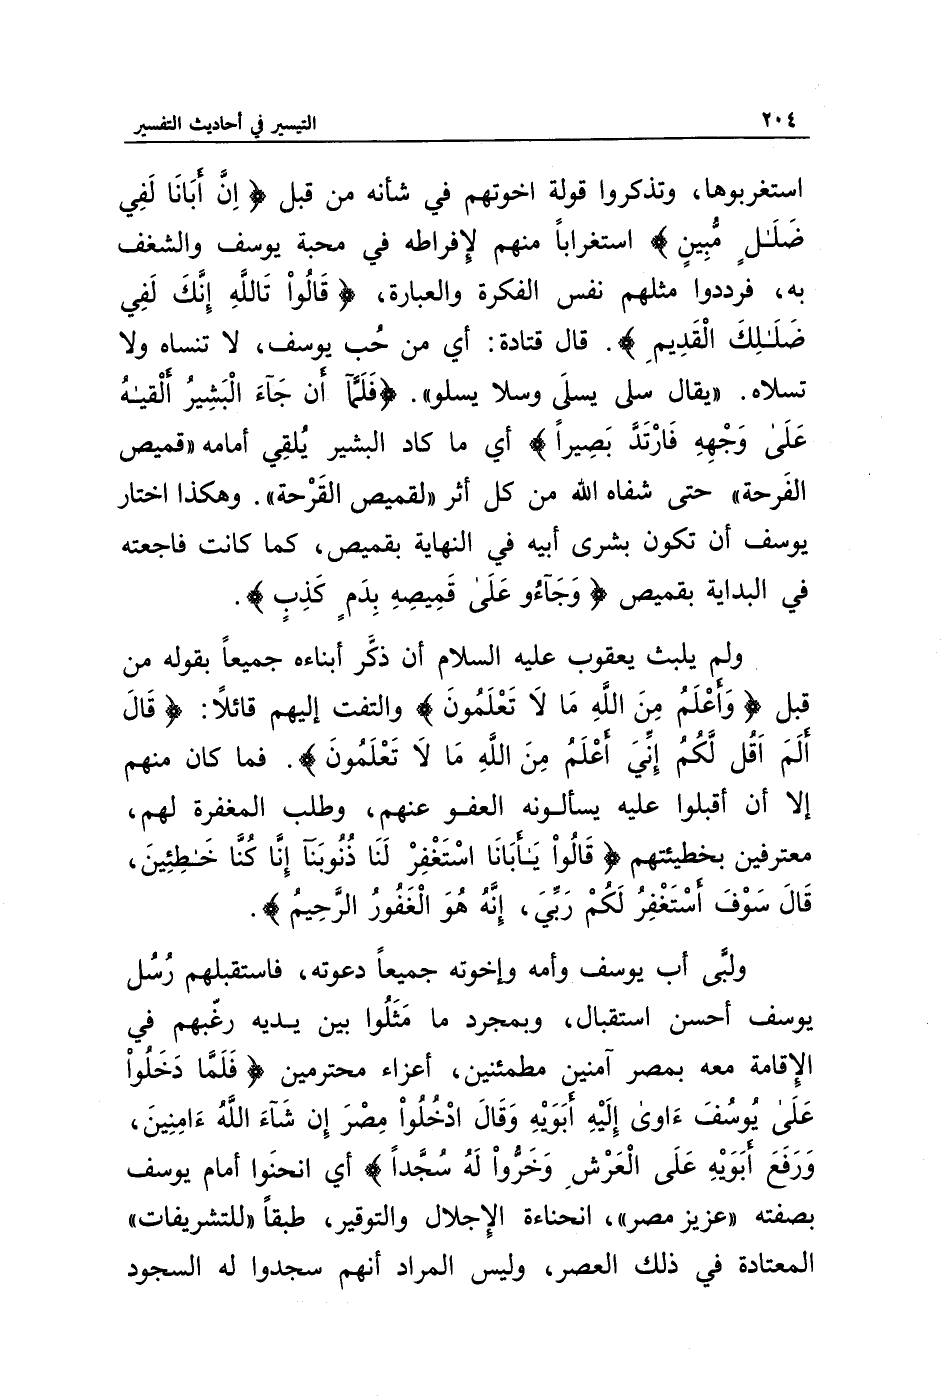 ٢٠٤ التيسير في أحاديث التفسير
استغربوها، وتذكروا قولة اخوتهم في شأنه من قبل ﴿ إِنَّ أَبَانَا لَفِي
ضَلَـٰلٍ مُّبِينٍ ﴾ استغراباً منهم لإفراطه في محبة يوسف والشغف
به، فرددوا مثلهم نفس الفكرة والعبارة، ﴿ قَالُواْ تَاللَّهِ إِنَّكَ لَفِي
ضَلَـٰلِكَ الْقَدِيمِ ﴾. قال قتادة: أي من حُب يوسف، لا تنساه ولا
تسلاه. «يقال سلى يسلَى وسلا يسلو». ﴿فَلَمَّآ أَن جَآءَ الْبَشِيرُ أَلْقَيـٰهُ
عَلَىٰ وَجْهِهِ فَارْتَدَّ بَصِيراً ﴾ أي ما كاد البشير يُلقِي أمامه «قميص
الفَرحة» حتى شفاه الله من كل أثر «لقميص القَرْحة». وهكذا اختار
يوسف أن تكون بشرى أبيه في النهاية بقميص، كما كانت فاجعته
في البداية بقميص ﴿ وَجَآءُو عَلَىٰ قَمِيصِهِ بِدَمٍ كَذِبٍ ﴾.
ولم يلبث يعقوب عليه السلام أن ذكَّر أبناءه جميعاً بقوله من
قبل ﴿ وَأَعْلَمُ مِنَ اللَّهِ مَا لَا تَعْلَمُونَ ﴾ والتفت إليهم قائلًا: ﴿ قَالَ
أَلَمَ اَقُل لَّكُمُ إِنِّيَ أَعْلَمُ مِنَ اللَّهِ مَا لَا تَعْلَمُونَ ﴾. فما كان منهم
إلا أن أقبلوا عليه يسألونه العفو عنهم، وطلب المغفرة لهم،
معترفين بخطيئتهم ﴿ قَالُواْ يَـٰأَبَانَا اسْتَغْفِرْ لَنَا ذُنُوبَنَآ إِنَّا كُنَّا خَـٰطِئِينَ،
قَالَ سَوْفَ أَسْتَغْفِرُ لَكُمْ رَبِّيَ، إِنَّهُ هُوَ الْغَفُورُ الرَّحِيمُ ﴾.
ولبَّى أب يوسف وأمه وإخوته جميعاً دعوته، فاستقبلهم رُسُل
يوسف أحسن استقبال، وبمجرد ما مَثَلُوا بين يديه رغّبهم في
الإقامة معه بمصر آمنين مطمئنين، أعزاء محترمين ﴿ فَلَمَّا دَخَلُواْ
عَلَىٰ يُوسُفَ ءَاوىٰ إِلَيْهِ أَبَوَيْهِ وَقَالَ ادْخُلُواْ مِصْرَ إِن شَآءَ اللَّهُ ءَامِنِينَ،
وَرَفَعَ أَبَوَيْهِ عَلَى الْعَرْشِ وَخَرُّواْ لَهُ سُجَّداً ﴾ أي انحنَوا أمام يوسف
بصفته «عزيز مصر»، انحناءة الإجلال والتوقير، طبقاً «للتشريفات»
المعتادة في ذلك العصر، وليس المراد أنهم سجدوا له السجود